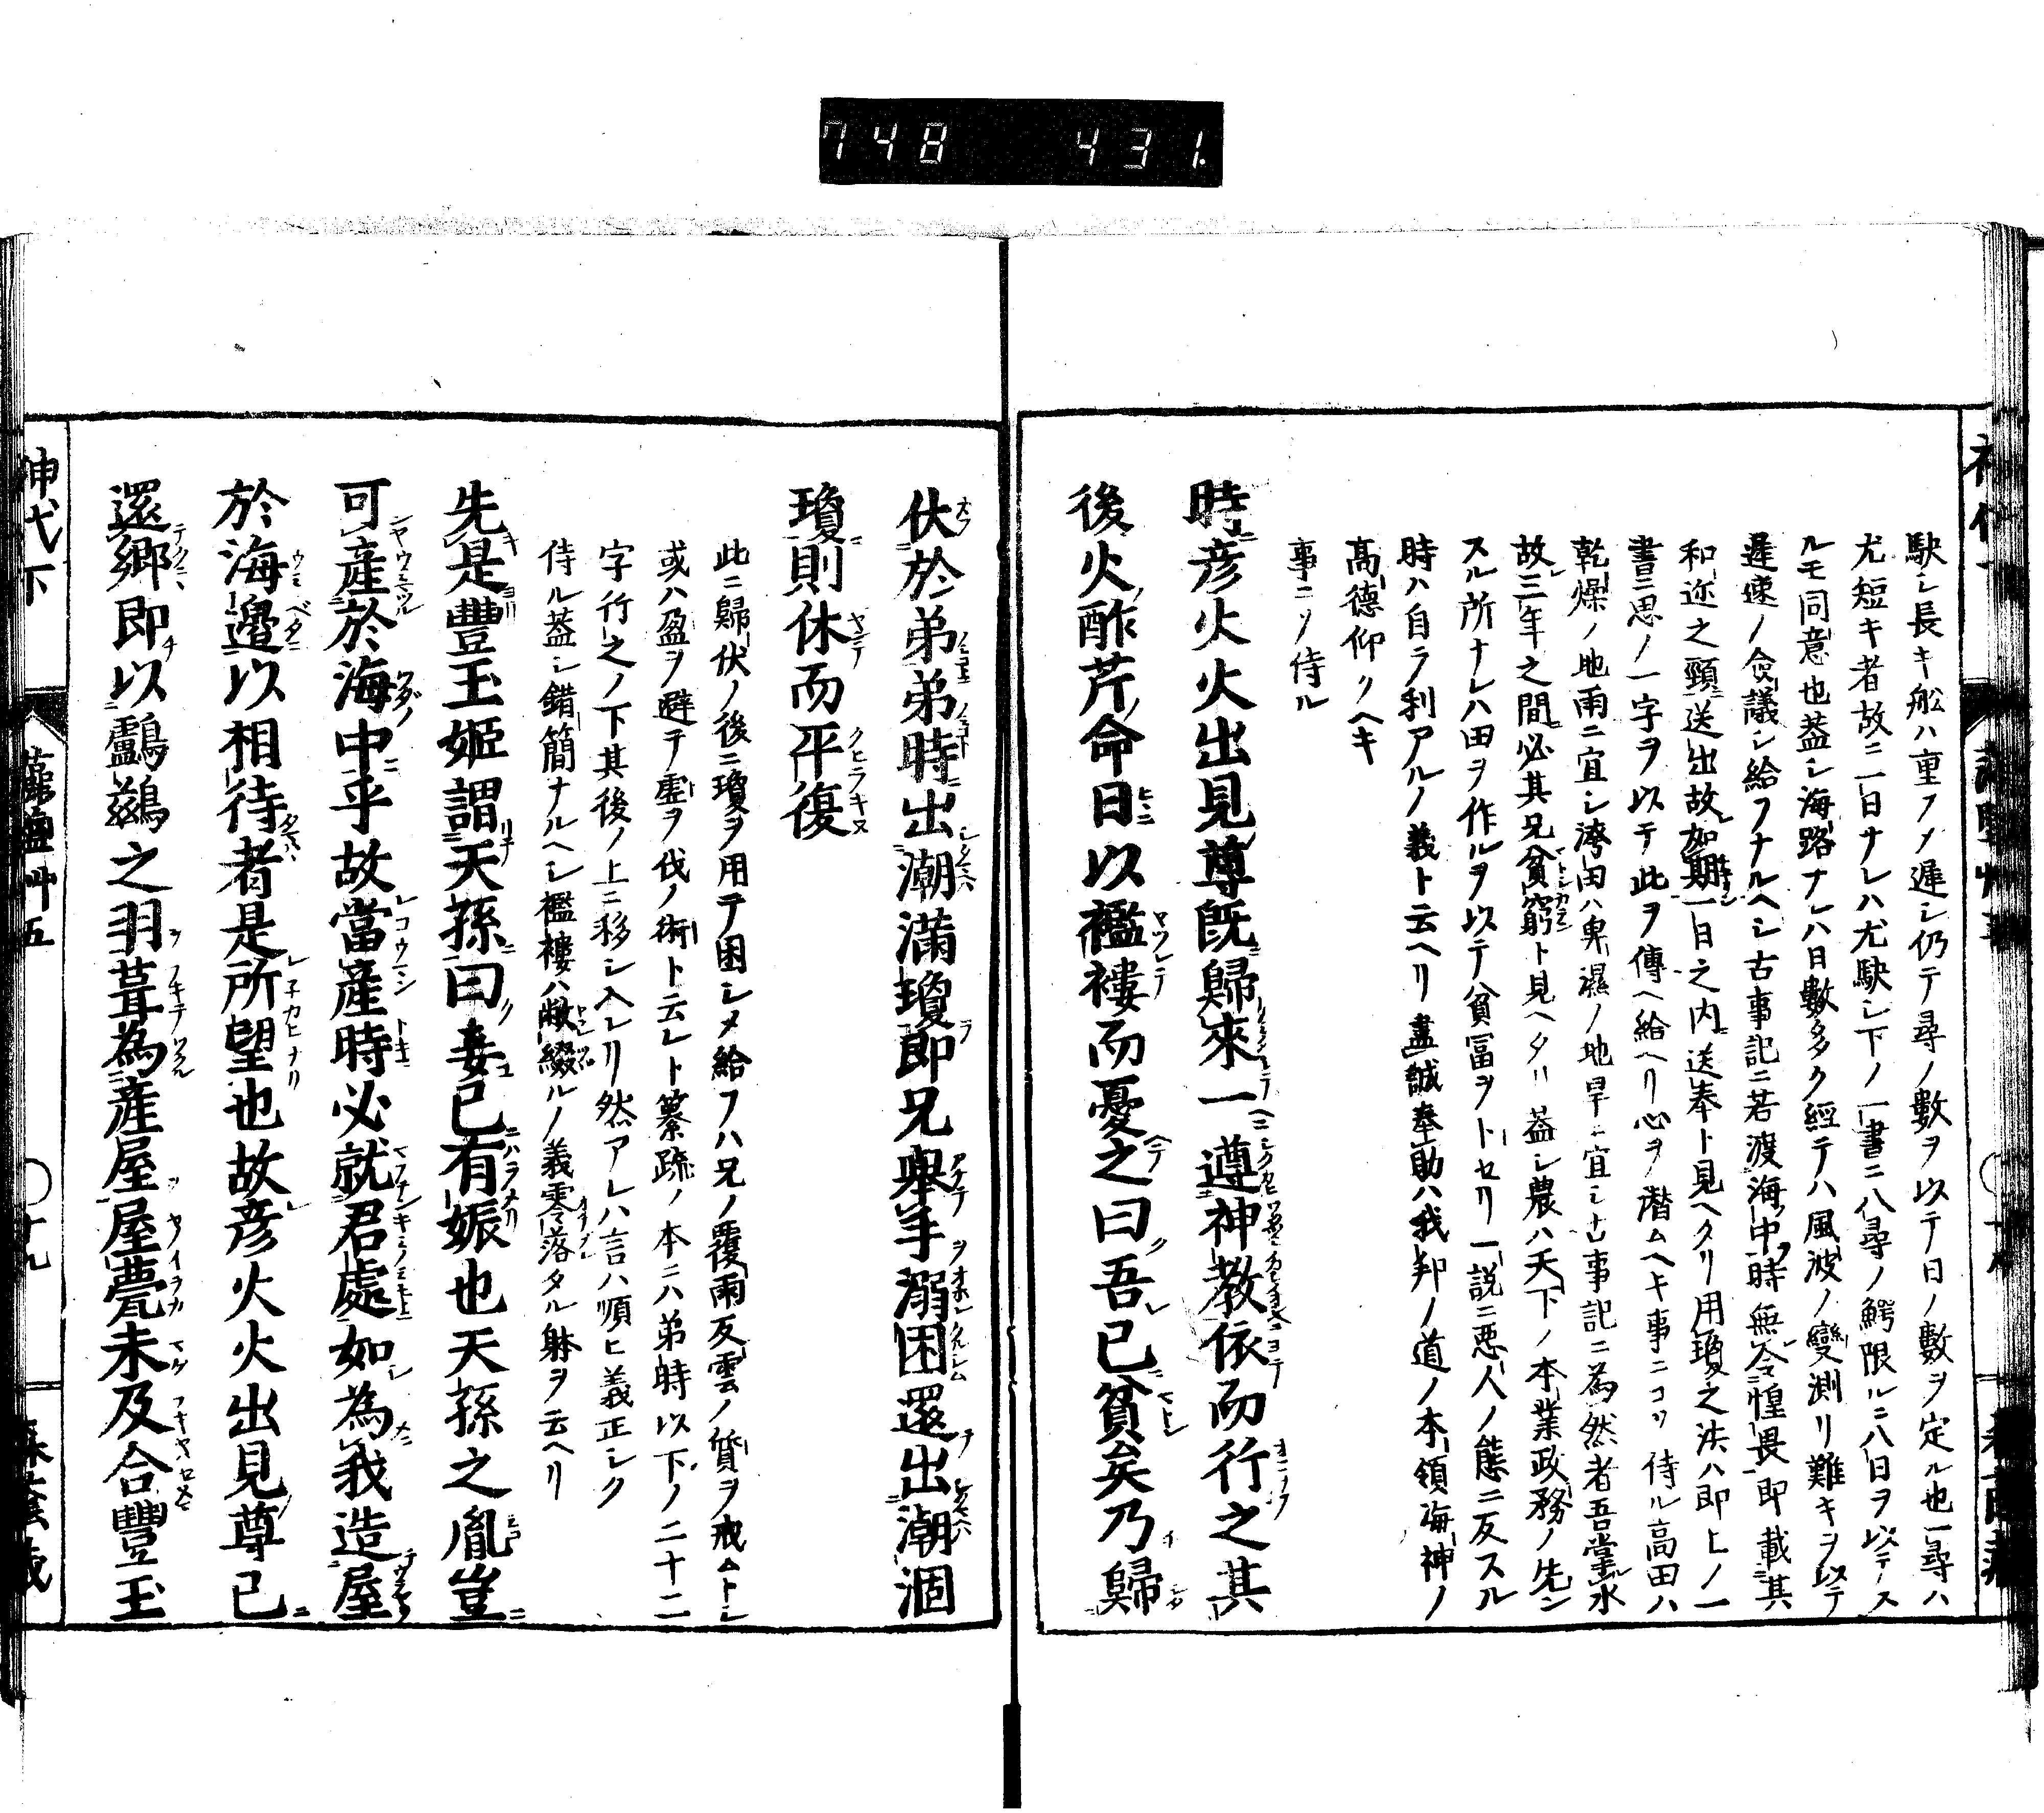 748 431.
駃シ長キ舩ハ重フメ遅シ仍テ尋ノ數ヲ以テ日ノ數ヲ定ル也一尋ハ
尤短キ者故ニ一日ナレハ尤駃シ下ノ一書ニ八尋ノ鰐限ルニ八日ヲ以テス
ルモ同意也盖シ海路ナレハ日數多ク經テハ風波ノ變測リ難キヲ以テ
遲速ノ僉議シ給フナルヘシ古事記ニ若渡海中時無令惶畏即載其
和迩之頸送出故如期一日之内送奉ト見ヘタリ用瓊之法ハ即上ノ一
書ニ思ノ一字ヲ以テ此ヲ傳ヘ給ヘリ心ヲ潜ムヘキ事ニコソ侍ル高田ハ
乾燥ノ地雨ニ宜シ洿田ハ卑濕ノ地旱ニ宜シ古事記ニ為然者吾掌水
故三年之間必其兄貧窮ト見ヘタリ盖シ農ハ天下ノ本業政務ノ先ン
スル所ナレハ田ヲ作ルヲ以テ貧冨ヲトセリ一説ニ惡人ノ態ニ反スル
時ハ自ラ利アルノ義ト云ヘリ盡誠奉助ハ我邦ノ道ノ本領海神ノ
髙德仰クヘキ
事ニソ侍ル
時彦火火出見尊旣歸來一遵神教依而行之其
後火酢芹命日以襤褸而憂之曰吾已貧矣乃歸
伏於弟弟時出潮滿瓊即兄舉手溺困還出潮涸
瓊則休而平復
此ニ歸伏ノ後ニ瓊ヲ用テ困シメ給フハ兄ノ覆雨反雲ノ質ヲ戒ムトシ
或ハ盈ヲ避テ虚ヲ伐ノ術ト云レト纂䟽ノ本ニハ弟時以下ノ二十二
字行之ノ下其後ノ上ニ移シ入レリ然アレハ言ハ順ヒ義正シク
侍ル盖シ錯簡ナルヘシ襤褸ハ敝綴ルノ義零落タル躰ヲ云ヘリ
先是豐玉姬謂天孫曰妾已有娠也天孫之胤豈
可產於海中乎故當產時必就君處如為我造屋
於海邊以相待者是所望也故彦火火出見尊已
還鄉即以鸕鷀之羽葺為產屋屋甍未及合豐玉
神代下
藻鹽艸五
〇十九